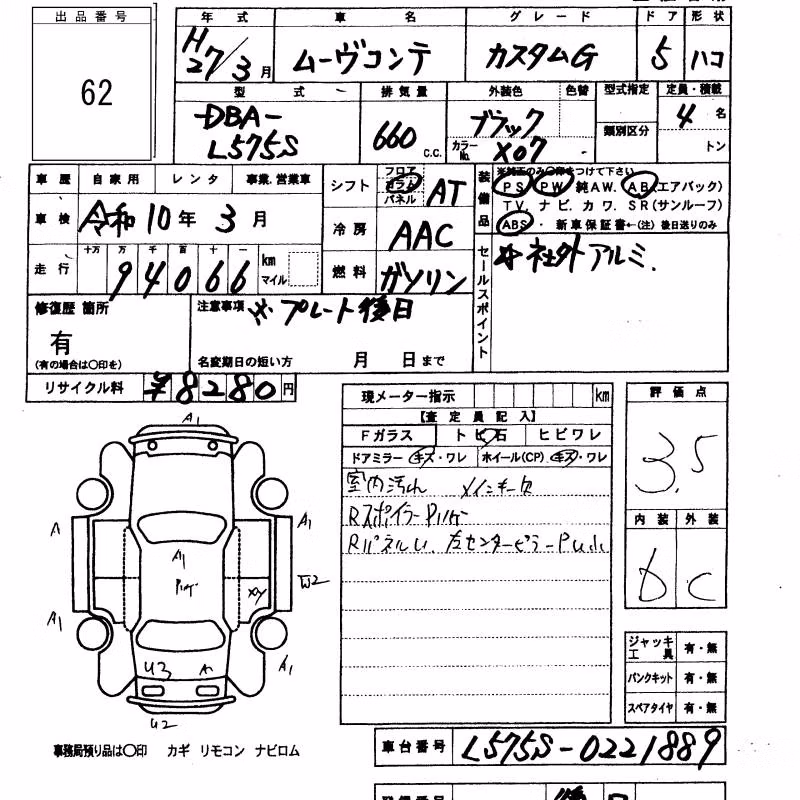 出品番号 62
年式 H27/3月
車名 ムーヴコンテ
グレード カスタムG
ドア 5
形状 ハコ
型式 DBA-L575S
排気量 660 C.C.
外装色 ブラック
色替
カラーNo. X07
型式指定
類別区分
定員・積載 4名
トン
車歴 自家用 レンタ 事業.営業車
車検 令和10年3月
走行 十万 万 千 百 十 一 94066 km マイル
シフト フロア コラム パネル AT
冷房 AAC
燃料 ガソリン
装備品 ※純正のみ○印をつけて下さい
PS PW 純AW. AB(エアバック)
TV. ナビ. カワ. SR(サンルーフ)
ABS ・ 新車保証書←(注) 後日送りのみ
セールスポイント
☆社外アルミ.
修復歴 箇所
有
(有の場合は○印を)
注意事項 ※プレート後日
名変期日の短い方 月 日まで
リサイクル料 ¥8280円
現メーター指示 km
【査定員記入】
Fガラス トビ石 ヒビワレ
ドアミラー キズ・ワレ ホイール(CP) キズ・ワレ
室内汚れ メインキー欠
Rスポイラー
Rパネル 左センターピラー
評価点
3.5
内装 外装
b c
ジャッキ 工具 有・無
パンクキット 有・無
スペアタイヤ 有・無
A1
A
A1
A1
W2
XY
A1
A1
U3
A
U2
事務局預り品は○印 カギ リモコン ナビロム
車台番号 L575S-0221889